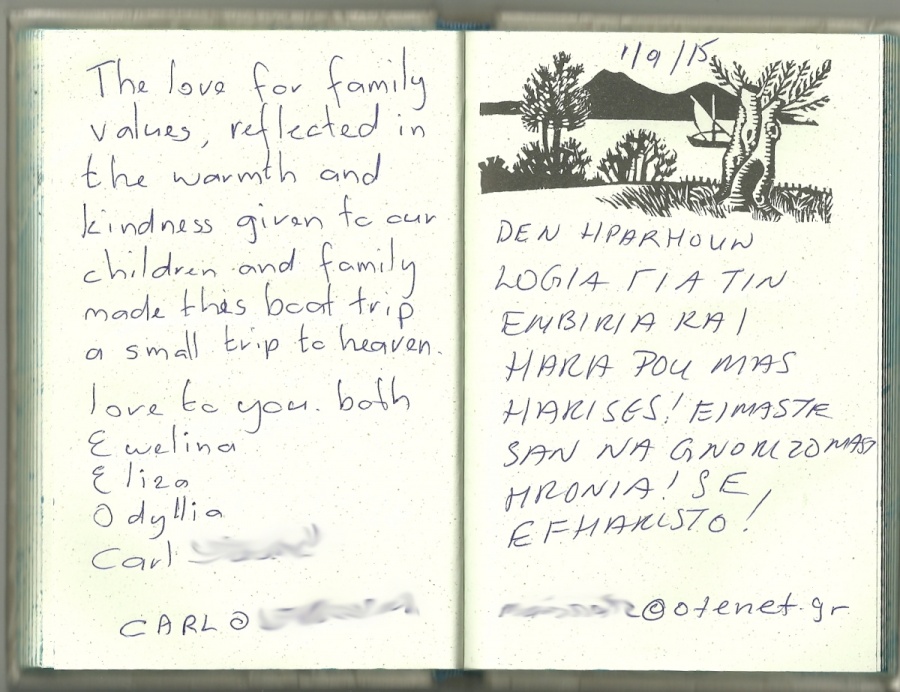 The love for family
values, reflected in
the warmth and
kindness given to our
children and family
made this boat trip
a small trip to heaven.
love to you. both
Ewelina
Eliza
Odyllia
Carl
CARL@
1/9/15
DEN HPARHOUN
LOGIA ΓIA TIN
EMBIRIA KAI
HARA POU MAS
HARISES! EIMASTE
SAN NA GNORIZOMAST
HRONIA! SE
EFHARISTO!
@otenet.gr